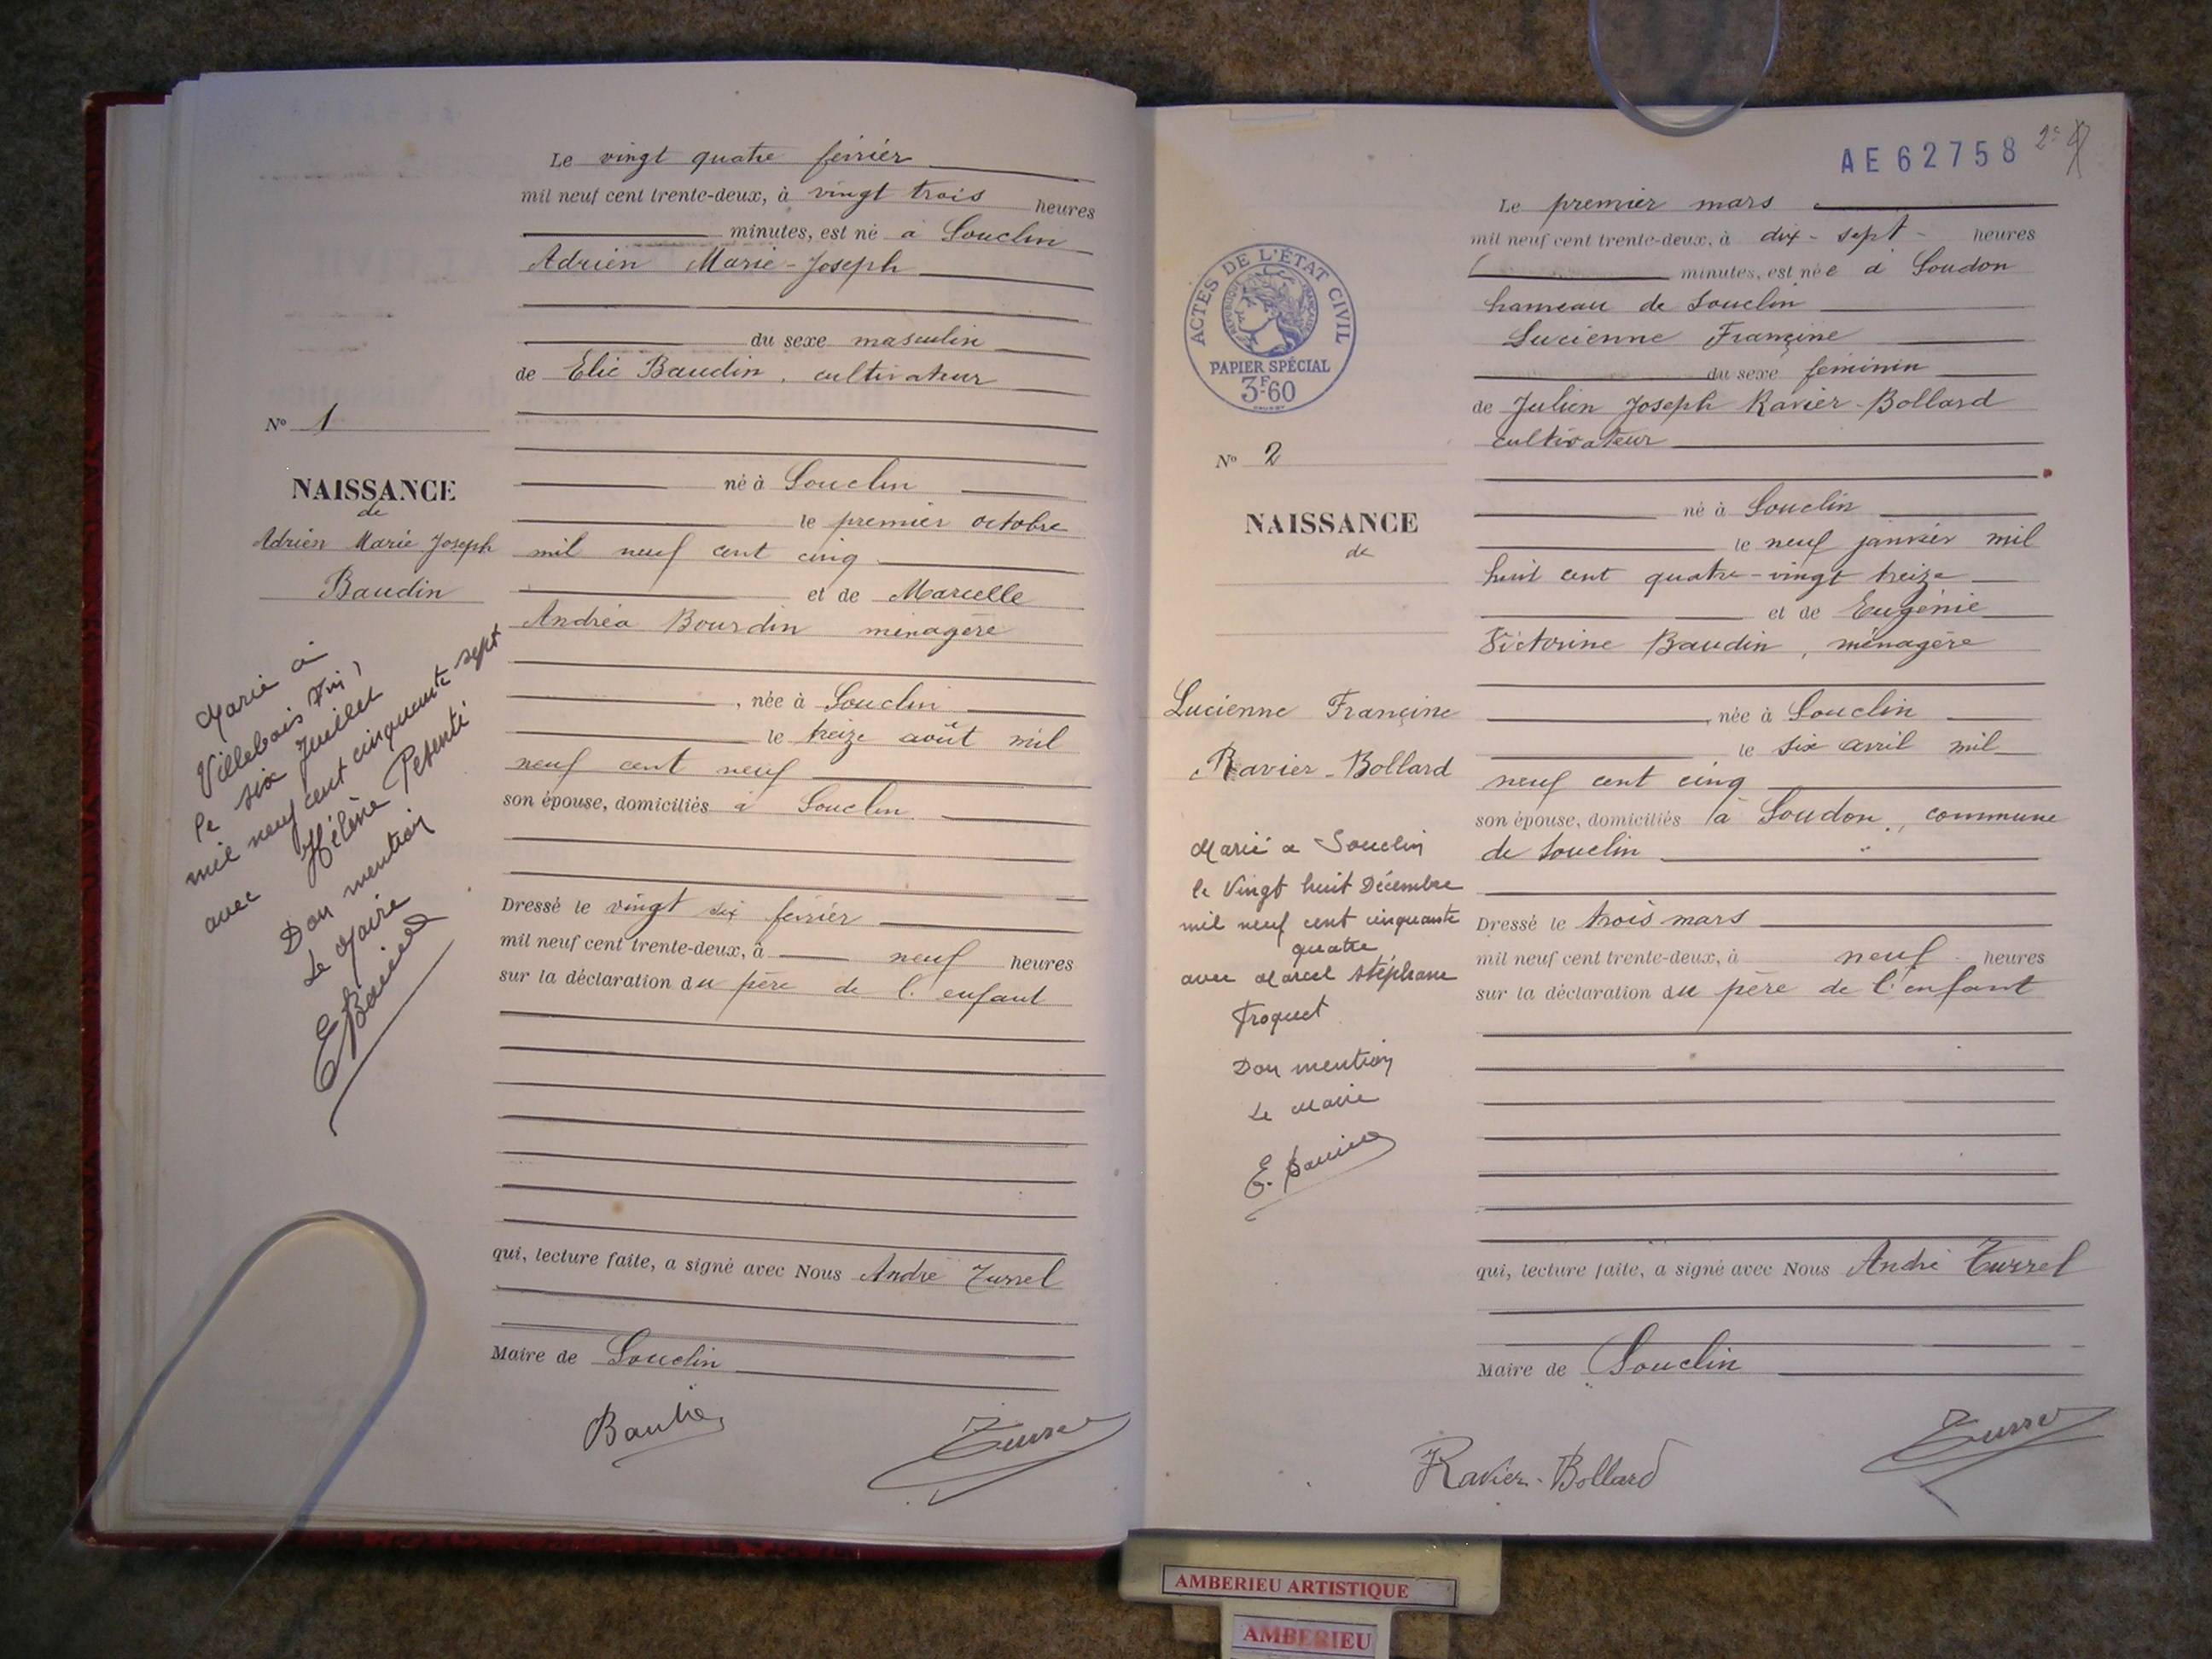 Le vingt quatre février
mil neuf cent trente-deux, à vingt trois heures
minutes, est né à Souclin
Adrien Marie-Joseph
du sexe masculin
de Elie Baudin, cultivateur
né à Souclin
le premier octobre
mil neuf cent cinq
et de Marcelle
Andréa Bourdin ménagère
, née à Souclin
le treize août mil
neuf cent neuf
son épouse, domiciliés à Souclin
Dressé le vingt six février
mil neuf cent trente-deux, à neuf heures
sur la déclaration du père de l'enfant
qui, lecture faite, a signé avec Nous André Turrel
Maire de Souclin
Turrel
No 1
NAISSANCE
de
Adrien Marie Joseph
Baudin
Marié à
Villebois
le six Juillet
mil neuf cent cinquante sept
avec Hélène Pesenti
Don mention
Le Maire
AE62758
2e
Le premier mars
mil neuf cent trente-deux, à dix-sept- heures
minutes, est née à Soudon
hameau de Souclin
Lucienne Françine
du sexe féminin
de Julien Joseph Ravier-Bollard
cultivateur
né à Souclin
le neuf janvier mil
huit cent quatre-vingt treize
et de Eugénie
Victorine Baudin, ménagère
, née à Souclin
le six avril mil
neuf cent cinq
son épouse, domiciliés à Soudon, commune
de Souclin
Dressé le trois mars
mil neuf cent trente-deux, à neuf heures
sur la déclaration du père de l'enfant
qui, lecture faite, a signé avec Nous André Turrel
Maire de Souclin
Ravier-Bollard
Turrel
ACTES DE L'ÉTAT CIVIL
RÉPUBLIQUE FRANÇAISE
PAPIER SPÉCIAL
3F.60
No 2
NAISSANCE
de
Lucienne Françine
Ravier-Bollard
Marié à Souclin
le Vingt huit Décembre
mil neuf cent cinquante
quatre
avec Marcel Stéphane
Troquet
Don mention
Le Maire
AMBERIEU ARTISTIQUE
AMBERIEU